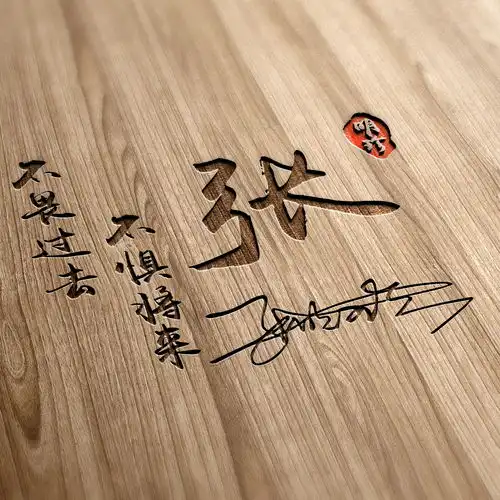 不畏过去
不惧将来
张